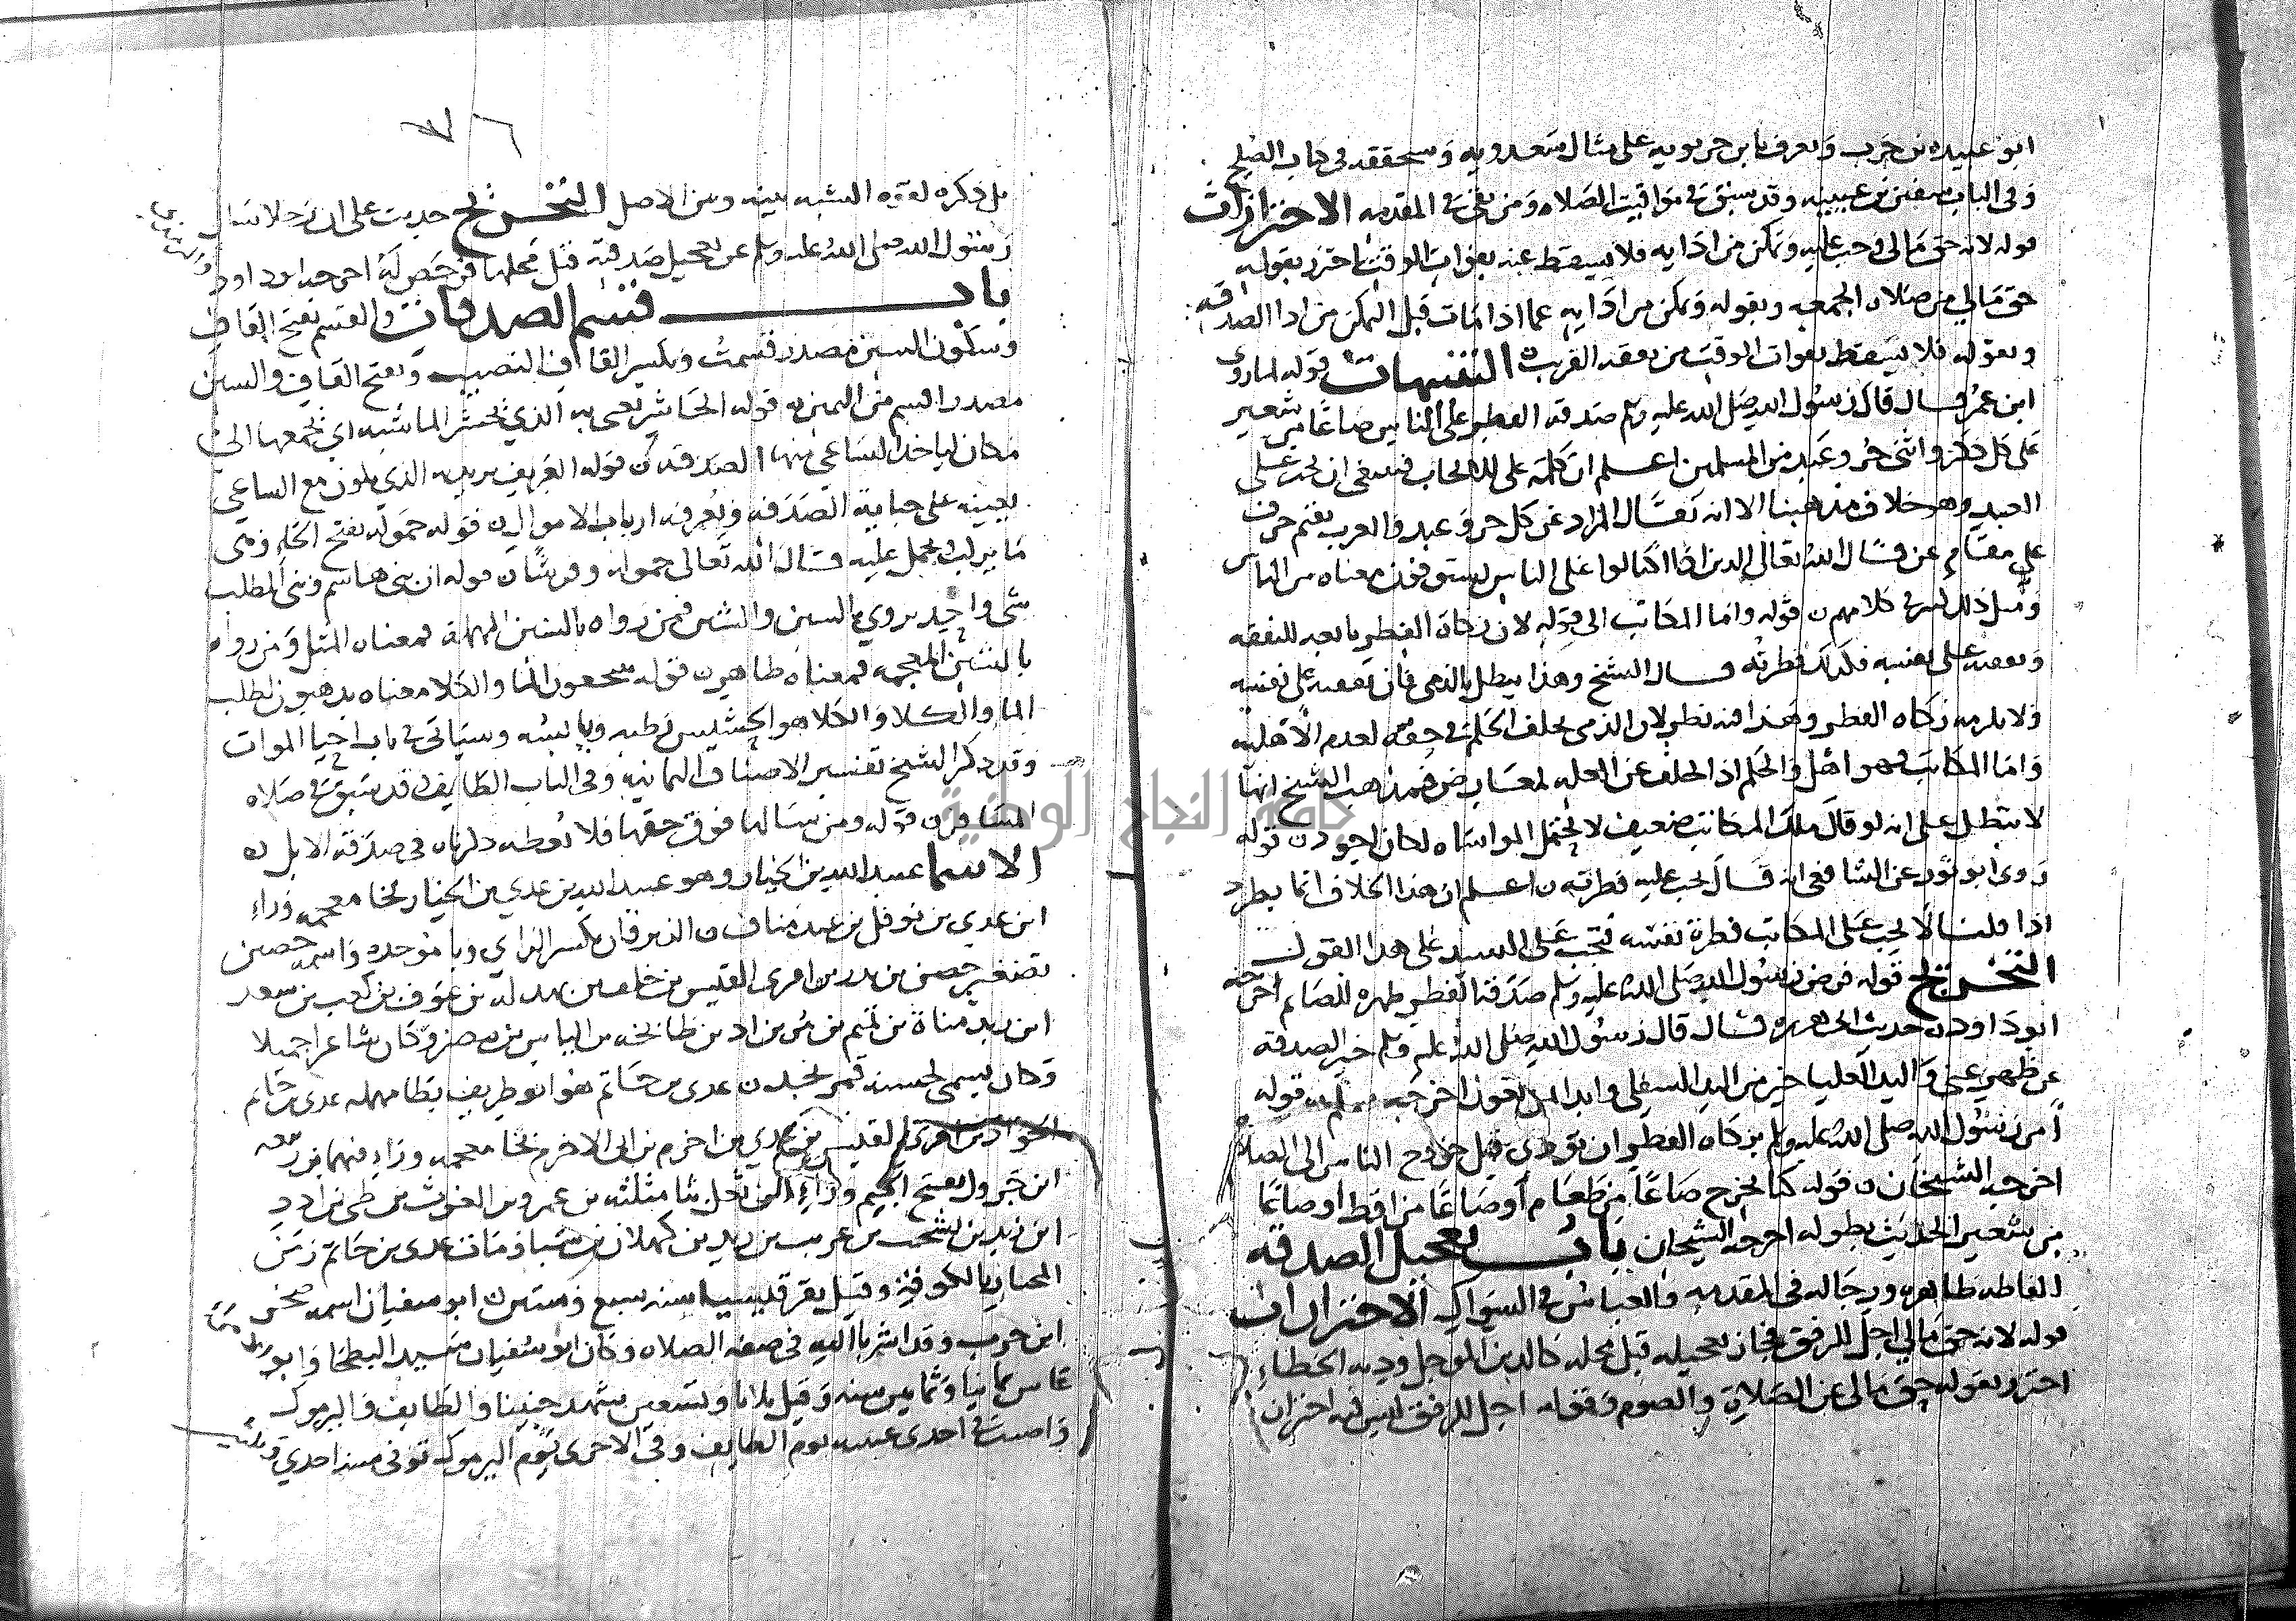 ابو عبيده بن حرب ويعرف بابن حربويه على مثال سعدويه وسنحققه في باب الصلح
وفي الباب سفين بن عيينه وقد سبق في مواقيت الصلاه ومن بقي في المقدمه الاحترازات
قوله لانه حق مالي وجب عليه وتمكن من ادايه فلا يسقط عنه بفوات الوقت احترز بقوله
حق مالي من صلاه الجمعه وبقوله وتمكن من ادايه عما اذا مات قبل التمكن من ادا الصدقه
وبقوله فلا يسقط بفوات الوقت من نفقه القريب التنبيهات قوله لما روى
ابن عمر قال قال رسول الله صلى الله عليه وسلم صدقه الفطر على الناس صاعا من شعير
على كل ذكر وانثى حر وعبد من المسلمين اعلم ان كلمه على للايجاب فينبغي ان تجب على
العبد وهو خلاف مذهبنا الا انه يقال المراد عن كل حر وعبد والعرب تقيم حرف
على مقام عن قال الله تعالى الذين اذا اكتالوا على الناس يستوفون معناه من الناس
ومثل ذلك كثير في كلامهم قوله واما المكاتب الى قوله لان زكاة الفطر تابعه للنفقه
ونفقته على نفسه فكذلك فطرته قال الشيخ وهذا يبطل بالذمي فان نفقته على نفسه
ولا يلزمه زكاه الفطر وهذا فيه نظر لان الذمي تخلف الحكم في حقه لعدم الاهليه
واما المكاتب فهو اهل والحكم اذا تخلف عن العله لمعارض فمذهب الشيخ انها
لا تبطل على انه لو قال ملك المكاتب ضعيف لا يحتمل المواساه لكان اجود قوله
روى ابو ثور عن الشافعي انه قال تجب عليه فطرته اعلم ان هذا الخلاف انما يطرد
اذا قلنا لا تجب على المكاتب فطرة نفسه فتجب على السيد على هذا القول
التخريج قوله فرض رسول الله صلى الله عليه وسلم صدقة الفطر طهره للصائم اخرجه
ابو داود حديث ابي هريره قال قال رسول الله صلى الله عليه وسلم خير الصدقه
عن ظهر غنى واليد العليا خير من اليد السفلى وابدا بمن تعول اخرجه مسلم قوله
امر رسول الله صلى الله عليه وسلم بزكاه الفطر ان تؤدى قبل خروج الناس الى الصلاه
اخرجه الشيخان قوله كنا نخرج صاعا من طعام او صاعا من اقط او صاعا
من شعير الحديث بطوله اخرجه الشيخان باب تعجيل الصدقه
الفاظه ظاهره ورجاله في المقدمه والعباس في السواك الاحترازات
قوله لانه حق مالي اجل للرفق فجاز تعجيله قبل محله كالدين المؤجل وديه الخطاء
احترز بقوله حق مالي عن الصلاة والصوم وقوله اجل للرفق ليس فيه احتراز
٧٦
بل ذكره لقوه الشبه بينه وبين الاصل التخريج حديث علي ان رجلا سال
رسول الله صلى الله عليه وسلم عن تعجيل صدقته قبل محلها فرخص له اخرجه ابو داود
والترمذي
باب قسم الصدقات والقسم بفتح القاف
وسكون السين مصدر قسمت وبكسر القاف النصيب وبفتح القاف والسين
مصدر اقسم من اليمين قوله الحاشر يعنى به الذي يحشر الماشيه اي يجمعها الى
مكان لياخذ الساعي منها الصدقه قوله العريف يريد به الذي يكون مع الساعي
يعينه على جباية الصدقه ويعرفه ارباب الاموال قوله حموله بفتح الحاء وهي
ما يركب ويحمل عليه قال الله تعالى حموله وفرشا قوله ان بني هاشم وبني المطلب
شي واحد يروي بالسين والشين فمن رواه بالسين المهمله فمعناه المثل ومن رواه
بالشين المعجمه فمعناه ظاهر قوله ينتجعون الما والكلا معناه يذهبون لطلب
الما والكلا والكلا هو الحشيش رطبه ويابسه وسياتي في باب احيا الموات
وقد ذكر الشيخ تفسير الاصناف الثمانيه وفي الباب الطايف قد سبق في صلاه
المسافر قوله ومن سالها فوق حقها فلا يعطه ذكرناه في صدقة الابل
الاسما عبيد الله بن الخيار وهو عبيد الله بن عدي بن الخيار بخا معجمه وراء
ابن عدي بن نوفل بن عبد مناف الزبرقان بكسر الزاي وبا موحده واسمه حصين
تصغير حصن بن بدر بن امرئ القيس بن خلف بن بهدلة بن عوف بن كعب بن سعد
ابن زيد مناة بن تميم بن مر بن اد بن طابخه بن الياس بن مضر وكان شاعرا جميلا
وكان يسمى لحسنه قمر نجد عدي بن حاتم هو ابو طريف بطا مهمله عدي بن حاتم
الجواد بن امرئ القيس بن عدي بن اخزم بن ابي الاخزم بخا معجمه وزاء فيهما بن ربيعه
ابن جرول بفتح الجيم وراء ابن ثعل بثا مثلثه بن عمرو بن الغوث بن طي بن ادد
ابن زيد بن يشجب بن عريب بن زيد بن كهلان بن سبا ومات عدي بن حاتم زمن
المختار بالكوفة وقيل بقرقيسيا سنه سبع وستين ابو سفيان اسمه صخر
ابن حرب وقد اشرنا اليه في صفه الصلاه وكان ابو سفيان سيد البطحا وابو
عاش ثمانيا وثمانين سنه وقيل ثلاثا وتسعين شهد حنينا والطايف واليرموك
واصيبت احدى عينيه يوم الطايف وفي الاخرى يوم اليرموك توفي سنه احدى وثلثين
جامعة النجاح الوطنية